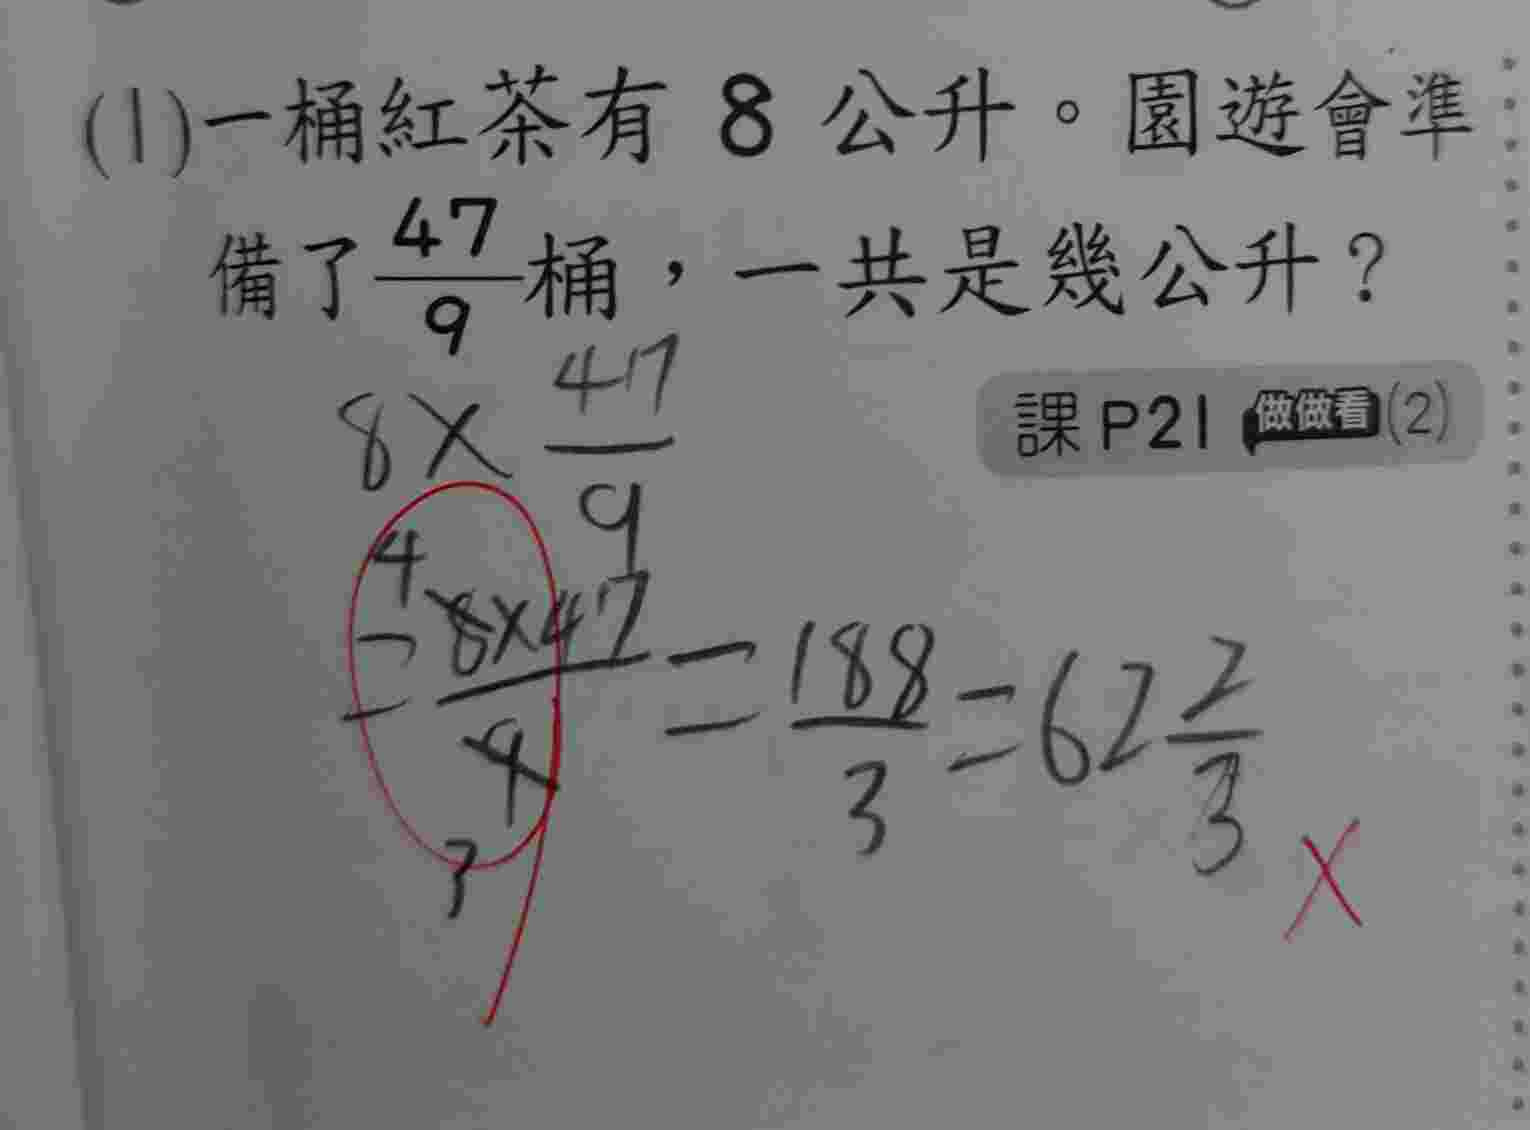 (1)一桶紅茶有 8 公升。園遊會準
備了47/9桶，一共是幾公升？
課P21 做做看(2)
8×47/9
4
=8×47/9=188/3=62 2/3
3